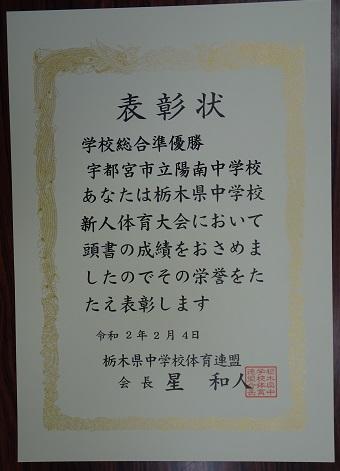 表彰状
学校総合準優勝
宇都宮市立陽南中学校
あなたは栃木県中学校
新人体育大会において
頭書の成績をおさめま
したのでその栄誉をた
たえ表彰します
令和2年2月4日
栃木県中学校体育連盟
会長 星 和人